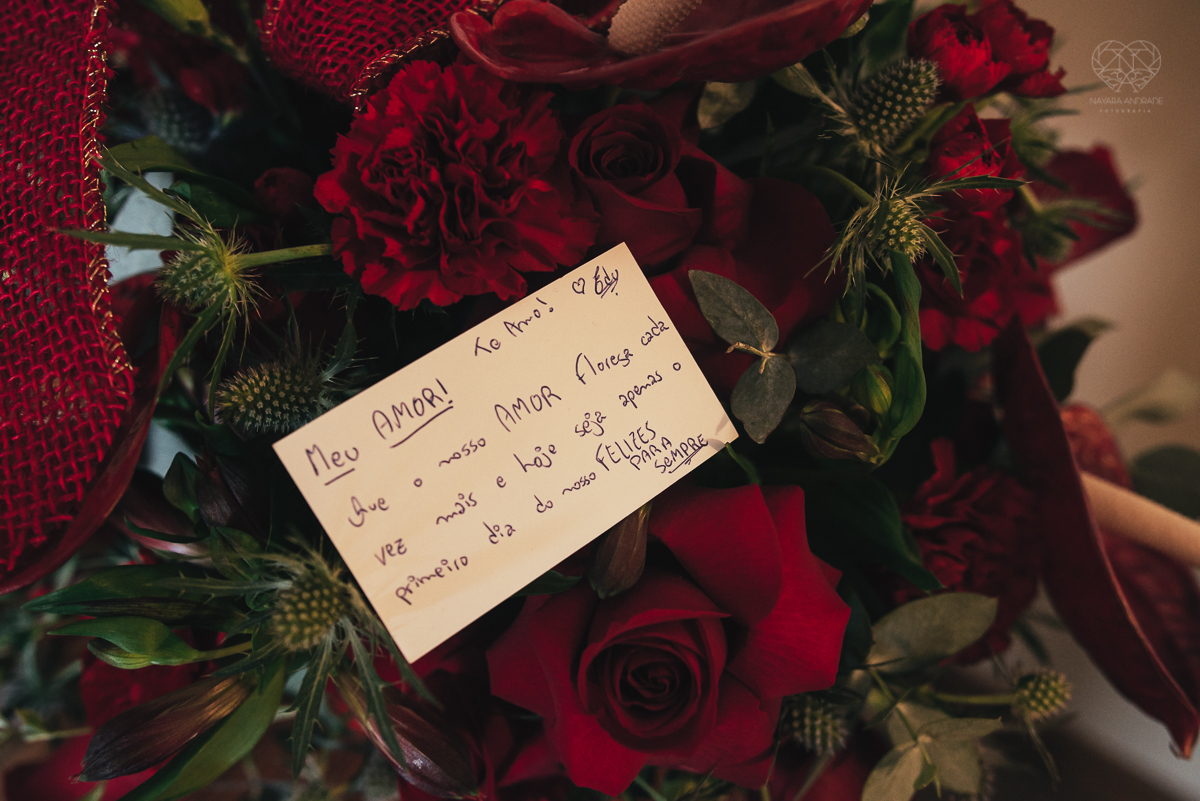 Meu AMOR!
Que o nosso AMOR Floresça cada
vez mais e hoje seja apenas o
primeiro dia do nosso FELIZES
PARA
SEMPRE
Te Amo! ♡ Edy
NAYARA ANDRADE
FOTOGRAFIA